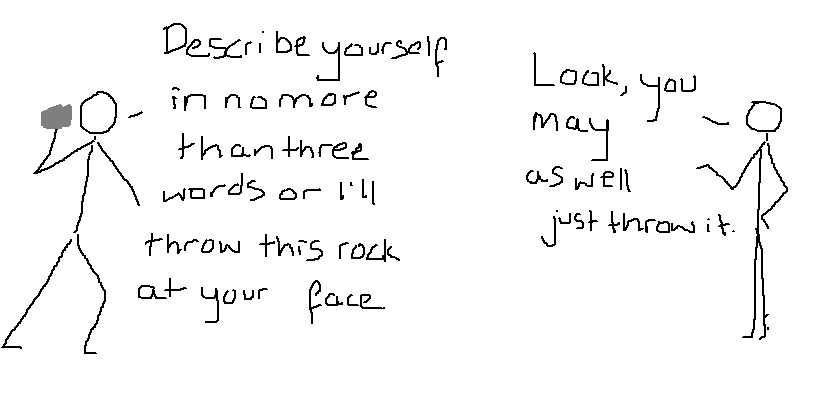 Describe yourself
in no more
than three
words or I'll
throw this rock
at your face
Look, you
may
as well
just throw it.